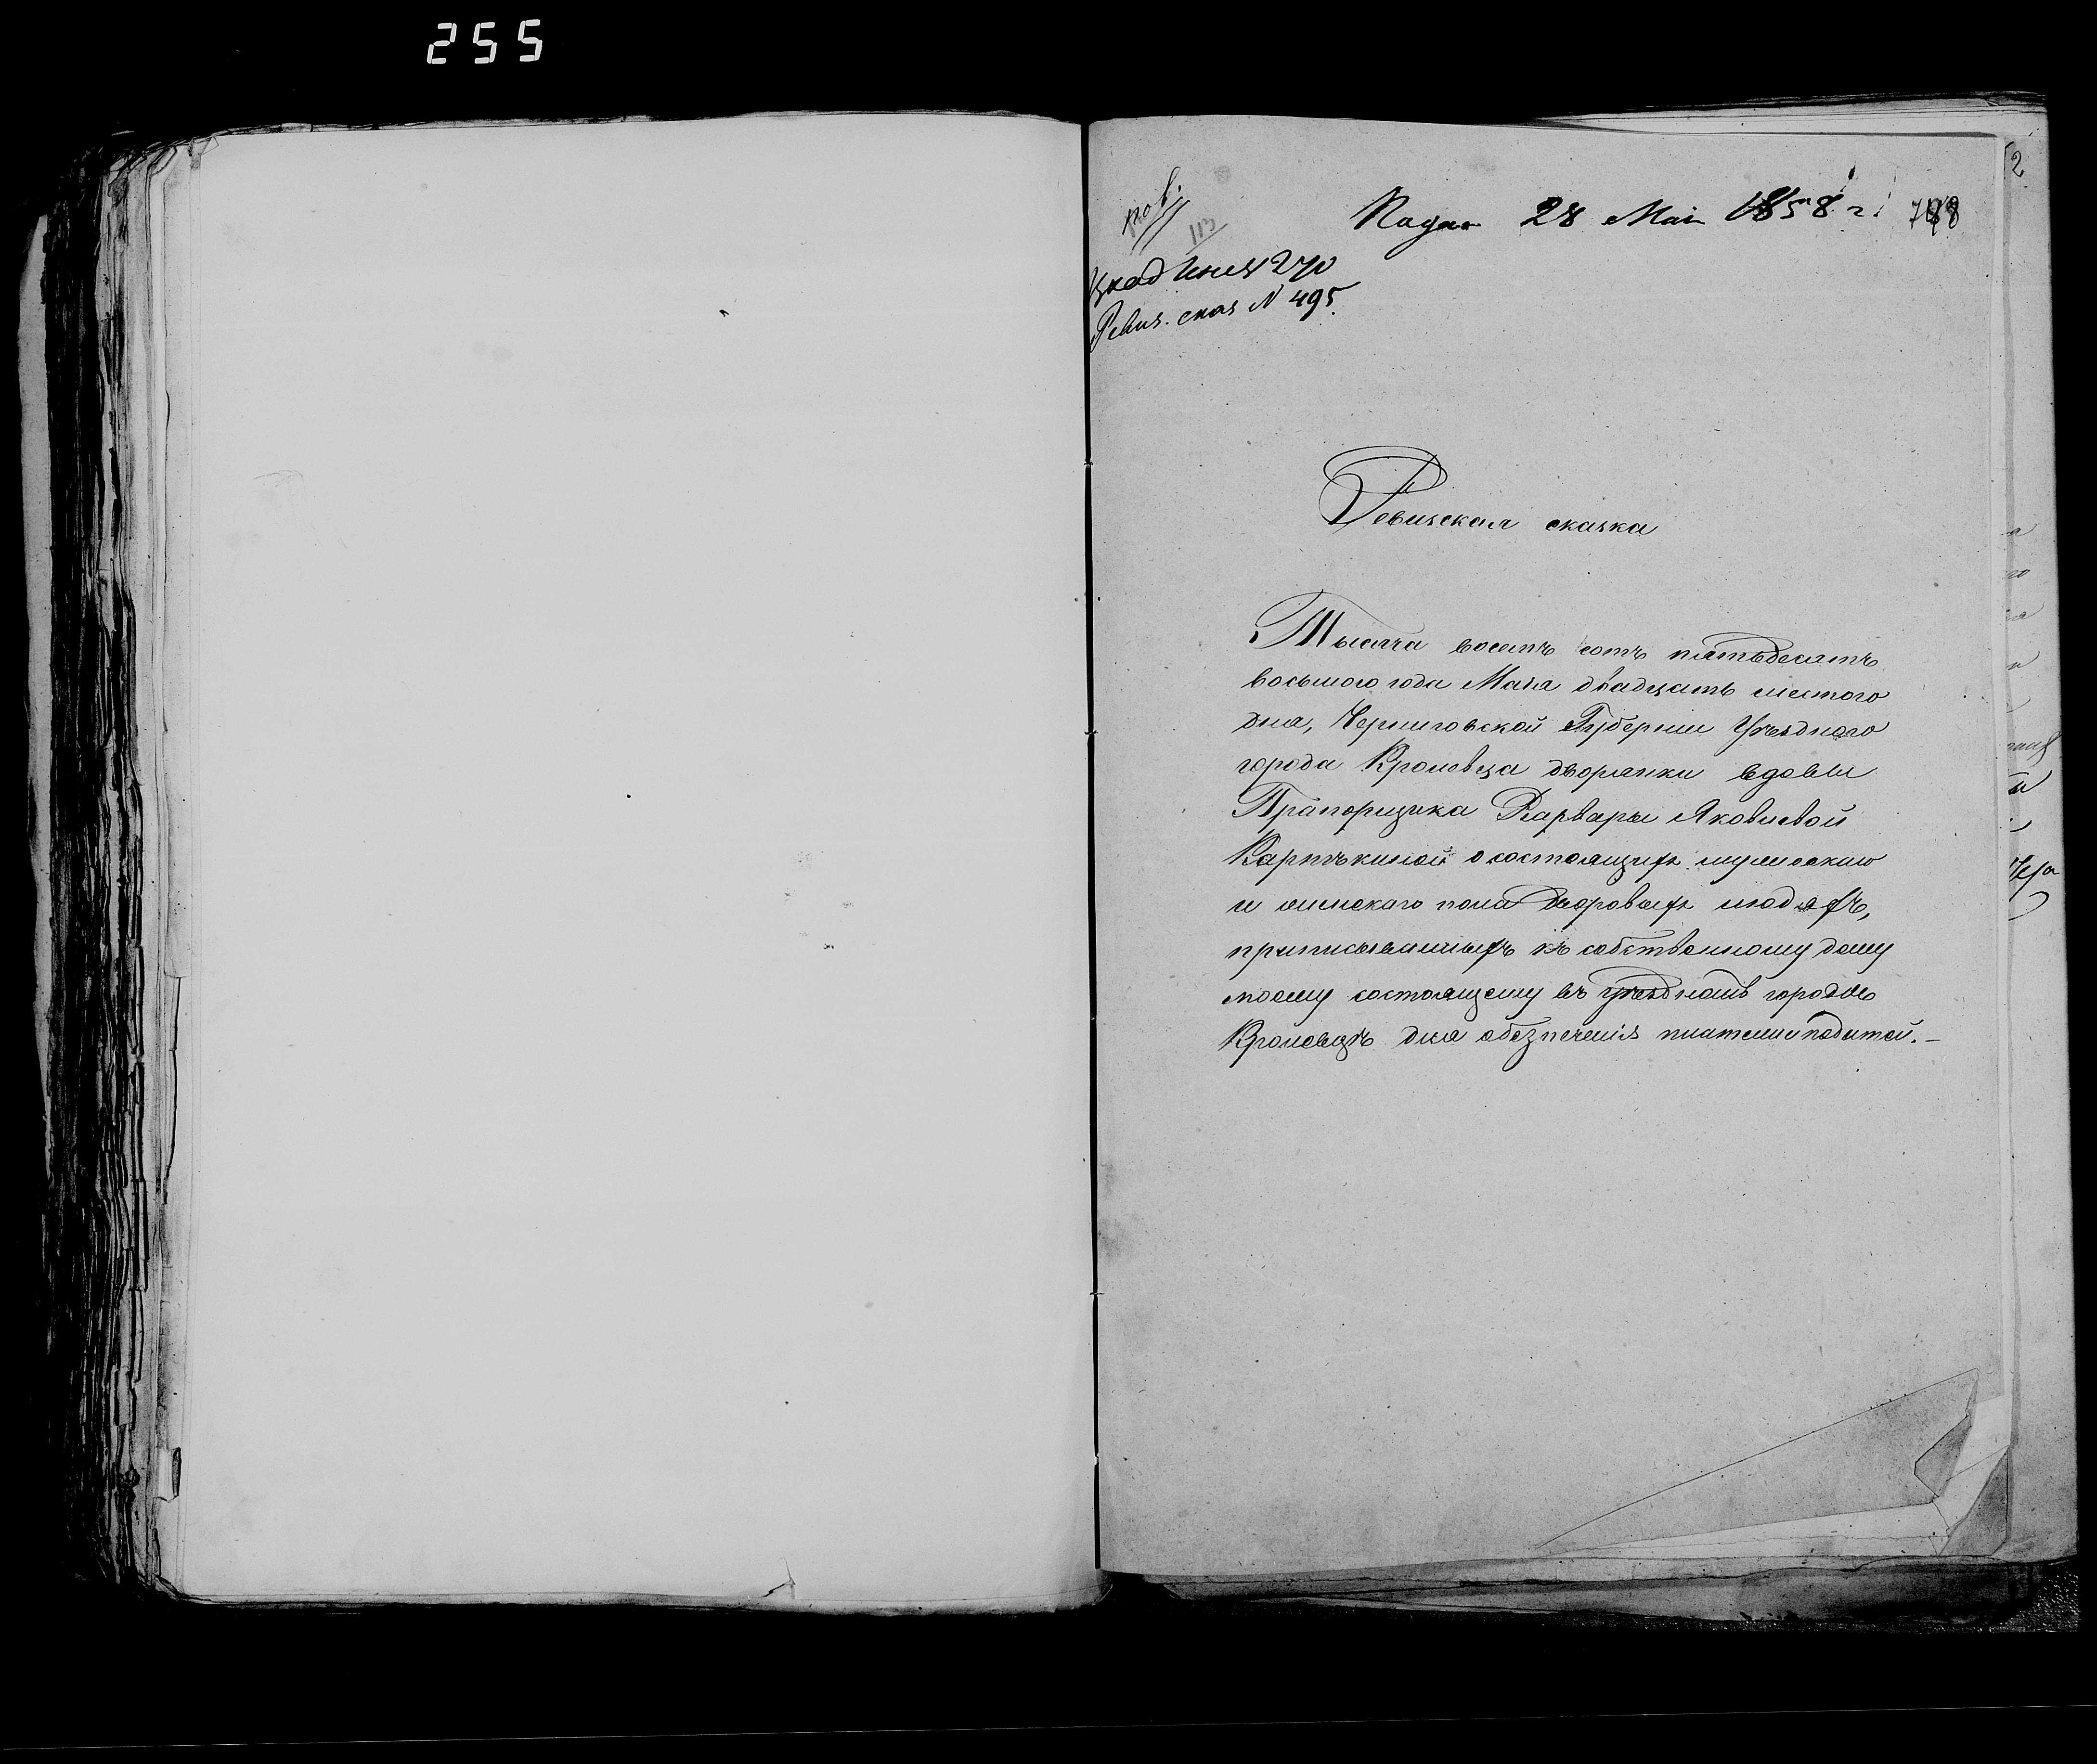 255
пов.
113
Подан 28 Мая 1858 г.
788
Ревиз. сказ N 495.
Ревизская сказка
Тысяча восемь сотъ пятьдесятъ
восьмого года Маія двадцать шестого
дня, Черниговской Губерніи Уѣздного
города Кролевца дворянки вдовы
Прапорщика Варвары Яковлевой
о состоящихъ мужескаго
и женскаго пола дворовыхъ людяхъ,
приписываемыхъ къ собственному дому
моему состоящему въ уѣздномъ городѣ
Кролевцѣ для обезпеченія платежи податей.—